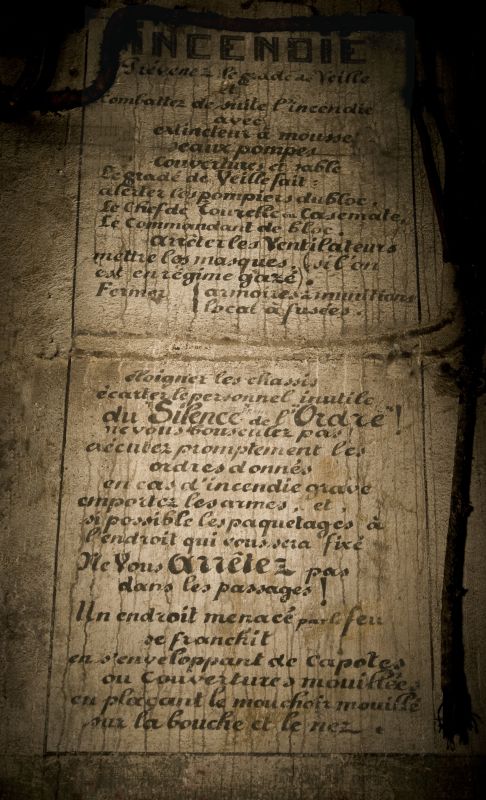 INCENDIE
Prévenez le gradé de Veille
et
combattez de suite l'incendie
avec
extincteur à mousse
seaux pompes
couvertures et sable
Le gradé de Veille fait :
alerter les pompiers du bloc.
Le Chef de Tourelle ou Casemate.
Le Commandant de bloc.
arrêter les Ventilateurs
mettre les masques (si l'on
est en régime gazé).
Fermer { armoires à munitions
local à fusées.
éloigner les chassis
écarter le personnel inutile
du "Silence" de l'"Ordre" !
ne vous bousculez pas
exécutez promptement les
ordres donnés
en cas d'incendie grave
emportez les armes, et,
si possible les paquetages à
l'endroit qui vous sera fixé
Ne Vous arrêtez pas
dans les passages !
Un endroit menacé par le feu
se franchit
en s'enveloppant de capotes
ou Couvertures mouillées
en plaçant le mouchoir mouillé
sur la bouche et le nez .